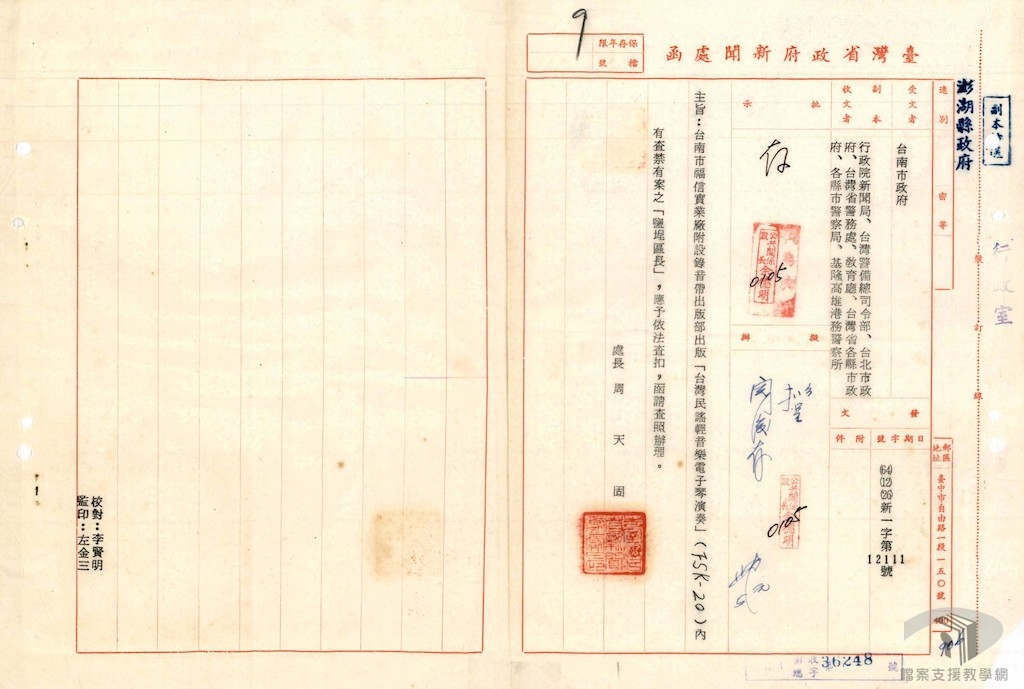 臺灣省政府新聞處函
保存年限
檔號
9
副本
澎湖縣政府
行政室
速別
密等
裝
訂
線
郵區
地址
臺中市自由路一段一五〇號
400
受文者
台南市政府
副本
收文者
行政院新聞局、台灣警備總司令部、台北市政
府、台灣省警務處、教育廳、台灣省各縣市政
府、各縣市警察局、基隆高雄港務警察所
發文
日期
字號
附件
(64)(12)(26)新一字第
12111號
批示
存
0105
擬辦
擬
閱後存
0105
主旨：台南市福信實業廠附設錄音帶出版部出版「台灣民謠輕音樂電子琴演奏」(FSK-20)內
有查禁有案之「鹽埕區長」，應予依法查扣，函請查照辦理。
處長 周天固
校對：李賢明
監印：左金三
收字
36248
號
檔案支援教學網